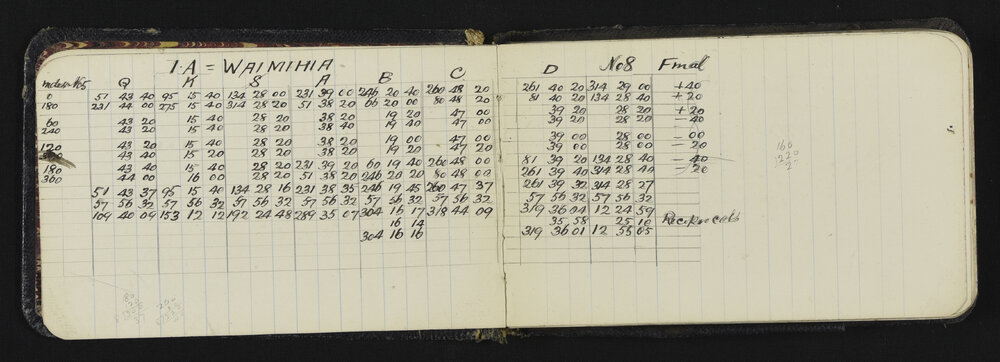 1·A = WAIMIHIA
Q K S A B C D No8 Final
0 51 43 40 95 15 40 134 28 00 231 39 00 246 20 40 260 48 20 261 40 20 314 29 00 +40
180 231 44 00 275 15 40 314 28 20 51 38 20 66 20 00 80 48 20 81 40 20 134 28 40 +20
60 43 20 15 40 28 20 38 20 19 20 47 00 39 20 28 20 +20
240 43 20 15 40 28 20 38 40 19 40 47 00 39 20 28 20 -40
120 43 20 15 40 28 20 38 20 19 00 47 00 39 00 28 00 -00
43 40 15 20 28 20 38 20 19 20 47 20 39 00 28 00 -20
180 43 40 15 40 28 20 231 39 20 60 19 40 260 48 00 81 39 20 134 28 40 -40
360 44 00 16 00 28 20 51 38 20 246 20 20 80 48 00 261 39 40 314 28 40 -20
51 43 37 95 15 40 134 28 16 231 38 35 246 19 45 260 47 37 261 39 32 314 28 27
57 56 32 57 56 32 57 56 32 57 56 32 57 56 32 57 56 32 57 56 32 57 56 32
109 40 09 153 12 12 192 24 48 289 35 07 304 16 17 318 44 09 319 36 04 12 24 59
16 14 35 58 25 10 Reciprocals
304 16 16 319 36 01 12 55 05
160